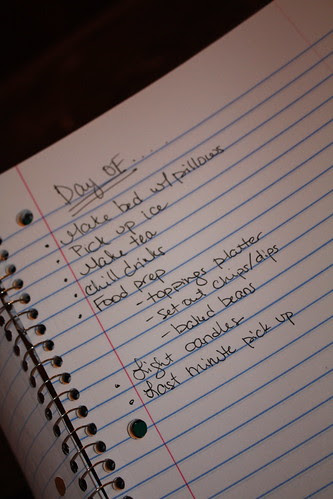 Day of.....
• Make bed w/pillows
• Pick up ice
• Make tea
• Chill drinks
• Food prep
- toppings platter
- set out chips/dips
- baked beans
• Light candles
• Last minute pick up